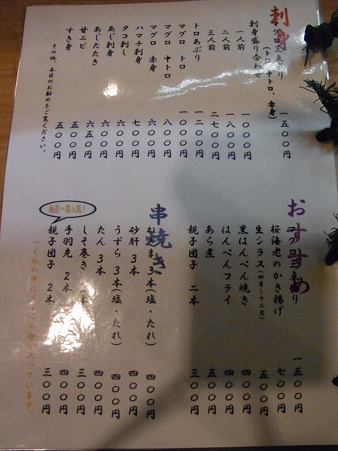 刺身
(トロ、中トロ、赤身) 一五〇〇円
刺身盛り合わせ
一人前 一〇〇〇円
二人前 一八〇〇円
三人前 二七〇〇円
トロあぶり 一二〇〇円
マグロ トロ 一〇〇〇円
マグロ 中トロ 八〇〇円
マグロ 赤身 六〇〇円
ハマチ刺身 七〇〇円
タコ刺し 六〇〇円
あじ刺身 六〇〇円
あじたたき 六五〇円
甘エビ 五〇〇円
すき身 五〇〇円
その他、本日のお勧めをご覧ください。
おすすめ
一五〇〇円
桜海老のかき揚げ 七〇〇円
生シラス(四月~十二月) 五〇〇円
黒はんぺん焼き 四〇〇円
はんぺんフライ 四〇〇円
あら煮 五〇〇円
親子団子 二本 三〇〇円
串焼き
3本(塩・たれ) 四〇〇円
砂肝 3本 四〇〇円
うずら 3本(塩・たれ) 四〇〇円
たん 3本 四〇〇円
しそ巻き 三〇〇円
手羽先 2本 四〇〇円
親子団子 2本 三〇〇円